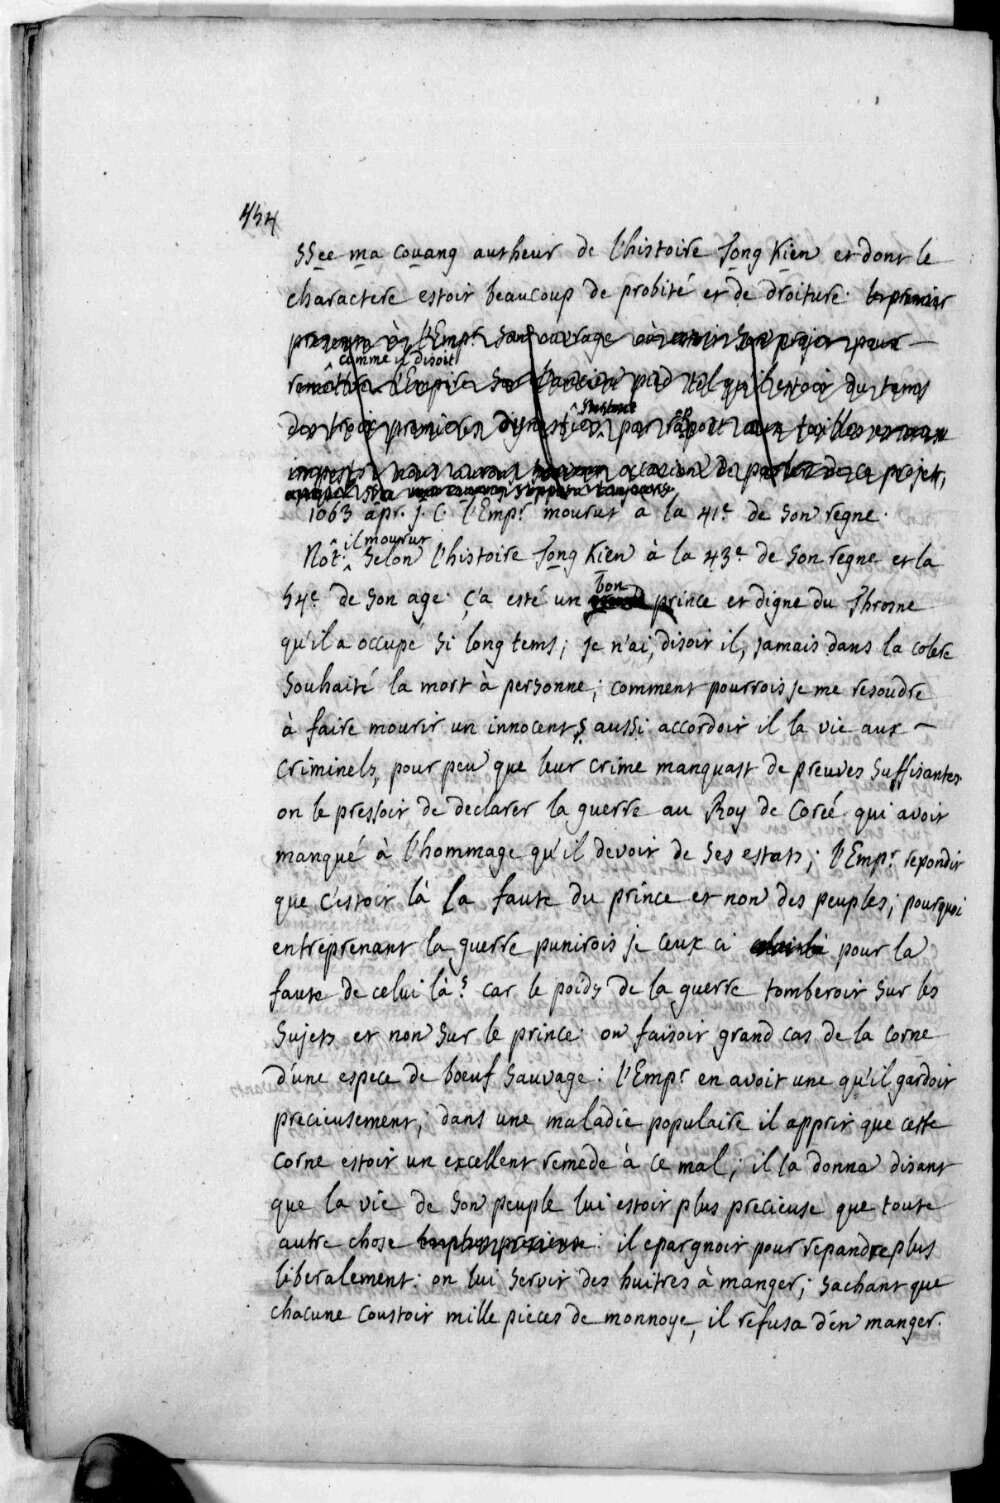 454
SSee ma couang autheur de l'histoire Tong Kien et dont le
charactere estoit beaucoup de probité et de droiture. le premier
presenta à l'Emp.r son ouvrage
comme il disoit
remettre l'Empire sur l'ancien pied tel qu'il estoit du tems
surtout
des trois premieres dynasties par raport aux tailles et aux
imposts nous aurons occasion de parler de ce projet,
1063 apr. J. C. l'Emp.r mourut à la 41.e de son regne.
il mourut
Not. selon l'histoire Tong Kien à la 43.e de son regne et la
bon
54.e de son age. ç'a esté un grand prince et digne du Throsne
qu'il a occupé si long tems; je n'ai, disoit il, jamais dans la colere
souhaité la mort à personne; comment pourrois je me resoudre
à faire mourir un innocent? aussi accordoit il la vie aux
criminels, pour peu que leur crime manquast de preuves suffisantes
on le pressoit de declarer la guerre au Roy de Coreé qui avoit
manqué à l'hommage qu'il devoit de ses estats; l'Emp.r repondit
que c'estoit là la faute du prince et non des peuples; pourquoi
entreprenant la guerre punirois je ceux ci pour la
faute de celui là? car le poids de la guerre tomberoit sur les
sujets et non sur le prince. on faisoit grand cas de la corne
d'une espece de bœuf sauvage: l'Emp.r en avoit une qu'il gardoit
precieusement; dans une maladie populaire il apprit que cette
corne estoit un excellent remede à ce mal; il la donna disant
que la vie de son peuple lui estoit plus precieuse que toute
autre chose : il epargnoit pour repandre plus
liberalement: on lui servit des huitres à manger; sachant que
chacune coustoit mille pieces de monnoye, il refusa d'en manger.